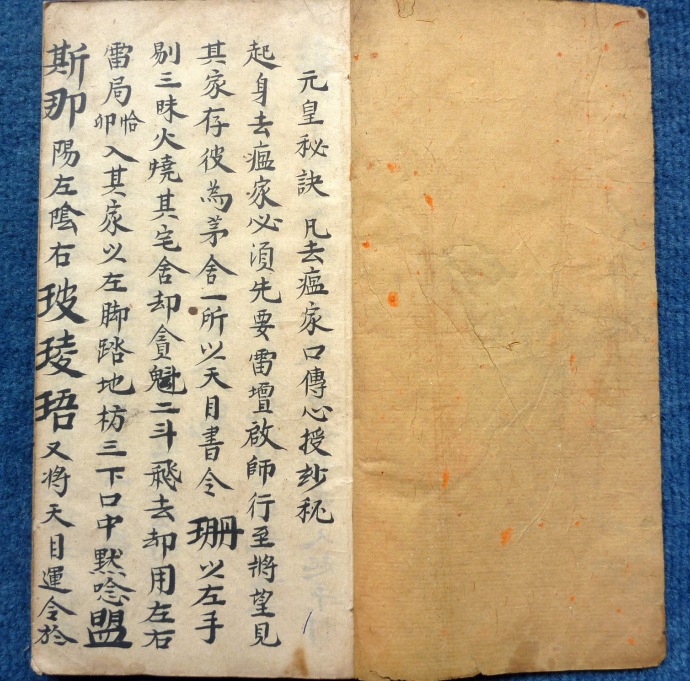 元皇秘訣 凡去瘟家口傳心授玅秘
起身去瘟家必須先要雷壇啟師行至將望見
其家存彼為茅舍一所以天目書令 珊 以左手
剔三昧火燒其宅舍却賫魁二斗飛去却用左右
雷局 恰卯 入其家以左脚踏地枋三下口中黙唸 盟
斯那 陽左陰右 玻琦珸 又將天目運令於